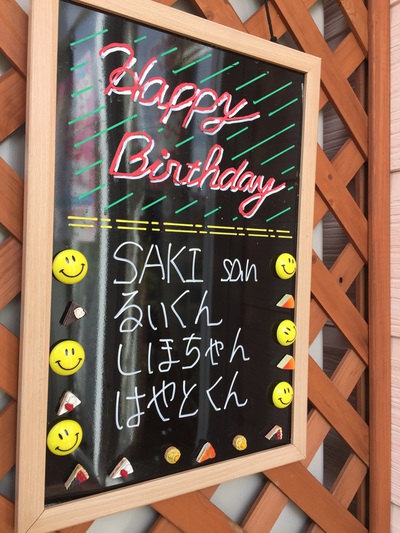 Happy
Birthday
SAKI san
るいくん
しほちゃん
はやとくん